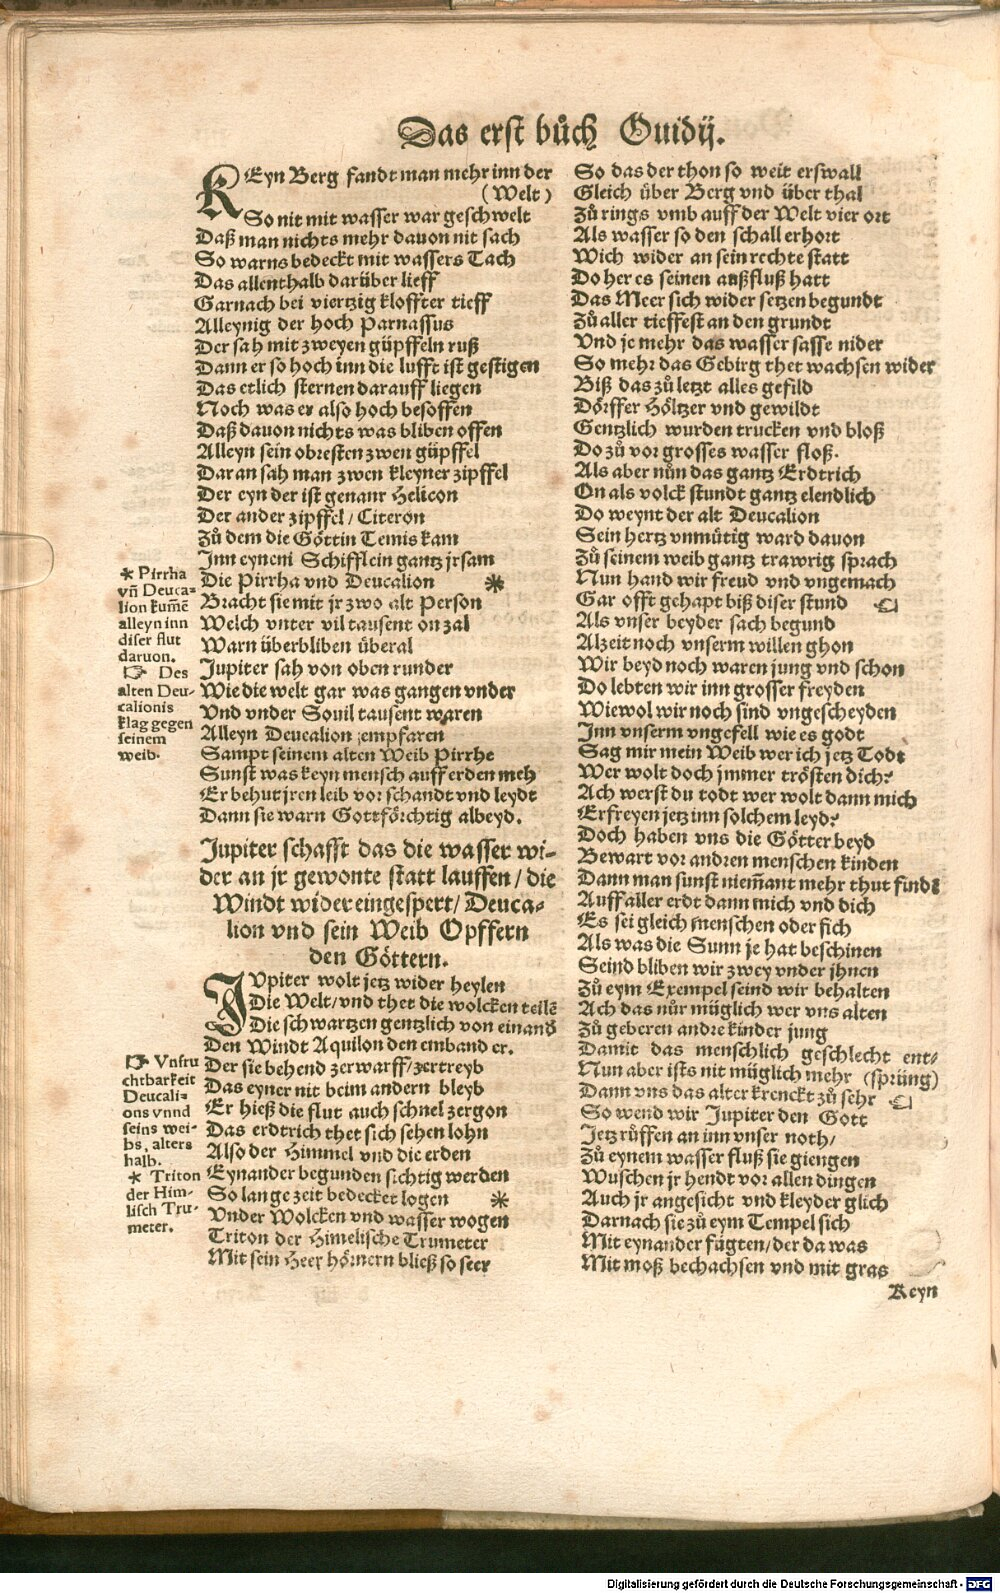 Das erst bůch Ouidij.
KEyn Berg fandt man mehr inn der
(Welt)
So nit mit wasser war geschwelt
Daß man nichts mehr dauon nit sach
So warns bedeckt mit wassers Tach
Das allenthalb darüber lieff
Garnach bei viertzig kloffter tieff
Alleynig der hoch Parnassus
Der sah mit zweyen güpffeln ruß
Dann er so hoch inn die lufft ist gestigen
Das etlich sternen darauff liegen
Noch was er also hoch besoffen
Daß dauon nichts was bliben offen
Alleyn sein obresten zwen güpffel
Daran sah man zwen kleyner zipffel
Der eyn der ist genant Helicon
Der ander zipffel / Citeron
Zů dem die Göttin Temis kam
Inn eynem Schifflein gantz jrsam
Die Pirrha vnd Deucalion *
Bracht sie mit jr zwo alt Person
Welch vnter vil tausent on zal
Warn überbliben überal
Jupiter sah von oben runder
Wie die welt gar was gangen vnder
Vnd vnder Souil tausent waren
Alleyn Deucalion empfaren
Sampt seinem alten Weib Pirrhe
Sunst was keyn mensch auff erden meh
Er behut jren leib vor schandt vnd leydt
Dann sie warn Gottförchtig albeyd.
* Pirrha
vñ Deuca-
lion kumẽ
alleyn inn
diser flut
daruon.
☞ Des
alten Deu-
calionis
klag gegen
seinem
weib.
Jupiter schafft das die wasser wi-
der an jr gewonte statt lauffen / die
Windt wider eingespert / Deuca-
lion vnd sein Weib Opffern
den Göttern.
JVpiter wolt jetz wider heylen
Die Welt / vnd thet die wolcken teilẽ
Die schwartzen gentzlich von einand
Den Windt Aquilon den emband er.
Der sie behend zerwarff / zertreyb
Das eyner nit beim andern bleyb
Er hieß die flut auch schnel zergon
Das erdtrich thet sich sehen lohn
Also der Himmel vnd die erden
Eynander begunden sichtig werden
So lange zeit bedecket logen *
Vnder Wolcken vnd wasser wogen
Triton der Himelische Trumeter
Mit sein Heer hörnern bließ so seer
☞ Vnfru
chtbarkeit
Deucali-
ons vnnd
seins wei-
bs, alters
halb.
* Triton
der Him-
lisch Tru-
meter.
So das der thon so weit erswall
Gleich über Berg vnd über thal
Zů rings vmb auff der Welt vier ort
Als wasser so den schall erhort
Wich wider an sein rechte statt
Do her es seinen außfluß hatt
Das Meer sich wider setzen begundt
Zů aller tieffest an den grundt
Vnd je mehr das wasser sasse nider
So mehr das Gebirg thet wachsen wider
Biß das zů letzt alles gefild
Dörffer Höltzer vnd gewildt
Gentzlich wurden trucken vnd bloß
Do zů vor grosses wasser floß.
Als aber nůn das gantz Erdtrich
On als volck stundt gantz elendlich
Do weynt der alt Deucalion
Sein hertz vnmůtig ward dauon
Zů seinem weib gantz trawrig sprach
Nun hand wir freud vnd vngemach
Gar offt gehapt biß diser stund ☜
Als vnser beyder sach begund
Alzeit noch vnserm willen ghon
Wir beyd noch waren jung vnd schon
Do lebten wir inn grosser freyden
Wiewol wir noch sind vngescheyden
Inn vnserm vngefell wie es godt
Sag mir mein Weib wer ich jetz Todt
Wer wolt doch jmmer trösten dich?
Ach werst du todt wer wolt dann mich
Erfreyen jetz inn solchem leyd?
Doch haben vns die Götter beyd
Bewart vor andren menschen kinden
Dann man sunst niemãnt mehr thut findẽ
Auff aller erdt dann mich vnd dich
Es sei gleich menschen oder fich
Als was die Sunn je hat beschinen
Seind bliben wir zwey vnder jhnen
Zů eym Exempel seind wir behalten
Ach das nůr müglich wer vns alten
Zů geberen andre kinder jung
Damit das menschlich geschlecht ent-
Nun aber ists nit müglich mehr (sprüng)
Dann vns das alter krenckt zů sehr ☜
So wend wir Jupiter den Gott
Jetz růffen an inn vnser noth /
Zů eynem wasser fluß sie giengen
Wuschen jr hendt vor allen dingen
Auch jr angesicht vnd kleyder glich
Darnach sie zů eym Tempel sich
Mit eynander fůgten / der da was
Mit moß bechachsen vnd mit gras
Keyn
Digitalisierung gefördert durch die Deutsche Forschungsgemeinschaft - DFG